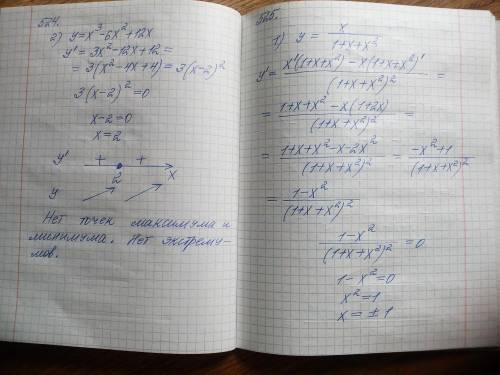 524.
2) y=x³-6x²+12x
y'=3x²-12x+12=
=3(x²-4x+4)=3(x-2)²
3(x-2)²=0
x-2=0
x=2
y' + +
2 x
y
Нет точек максимума и
минимума. Нет экстрему-
мов.
525.
1) y = x/(1+x+x²)
y'= (x'(1+x+x²)-x(1+x+x²)')/(1+x+x²)² =
= (1+x+x²-x(1+2x))/(1+x+x²)² =
= (1+x+x²-x-2x²)/(1+x+x²)² = (-x²+1)/(1+x+x²)²
= (1-x²)/(1+x+x²)²
(1-x²)/(1+x+x²)² =0
1-x²=0
x²=1
x=±1